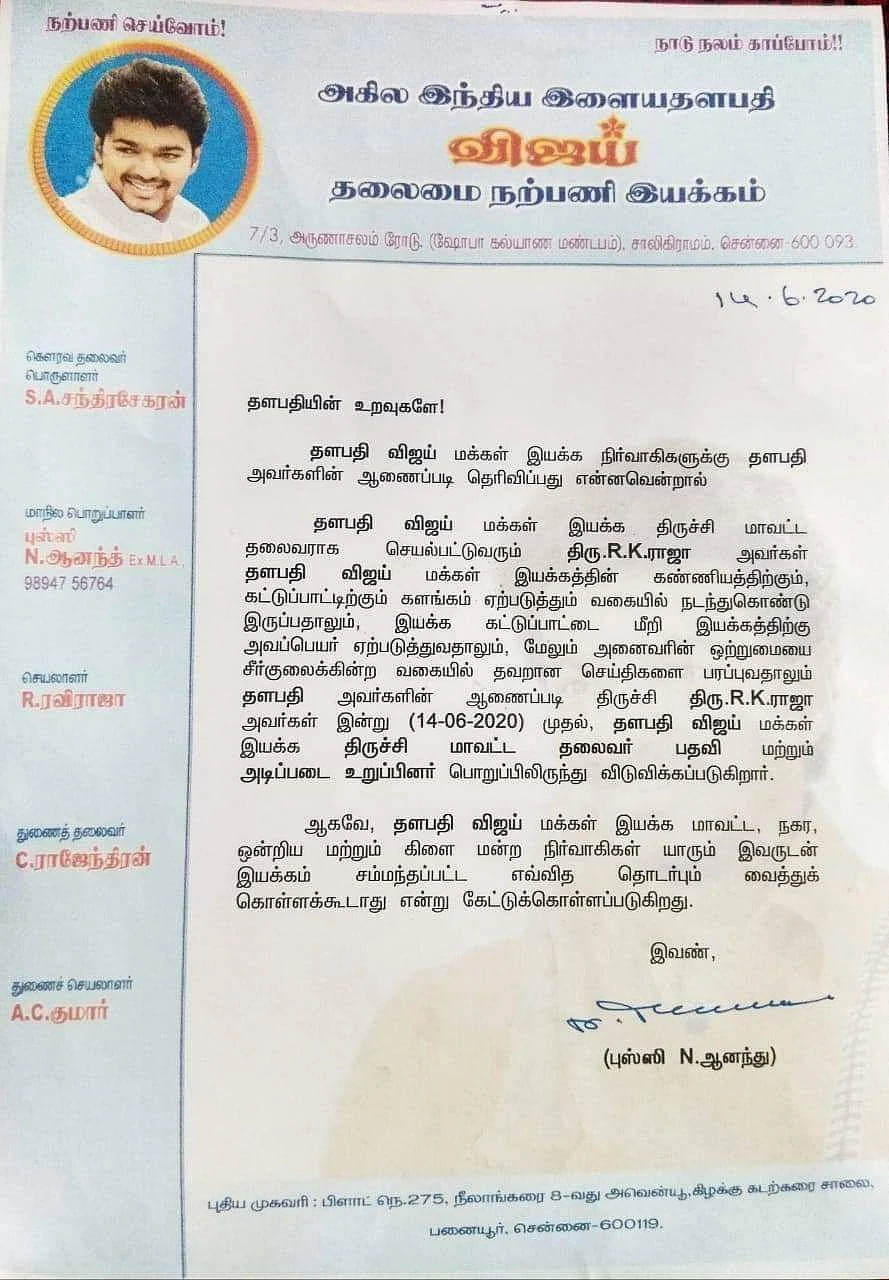 நற்பணி செய்வோம்!
நாடு நலம் காப்போம்!!
அகில இந்திய இளையதளபதி
விஜய்
தலைமை நற்பணி இயக்கம்
7/3, அருணாசலம் ரோடு, (ஷோபா கல்யாண மண்டபம்), சாலிகிராமம், சென்னை-600 093.
14.6.2020
கௌரவ தலைவர்
பொருளாளர்
S.A.சந்திரசேகரன்
மாநில பொறுப்பாளர்
புஸ்ஸி
N.ஆனந்த் Ex M.L.A.,
98947 56764
செயலாளர்
R.ரவிராஜா
துணைத் தலைவர்
C.ராஜேந்திரன்
துணைச் செயலாளர்
A.C.குமார்
தளபதியின் உறவுகளே!
தளபதி விஜய் மக்கள் இயக்க நிர்வாகிகளுக்கு தளபதி
அவர்களின் ஆணைப்படி தெரிவிப்பது என்னவென்றால்
தளபதி விஜய் மக்கள் இயக்க திருச்சி மாவட்ட
தலைவராக செயல்பட்டுவரும் திரு.R.K.ராஜா அவர்கள்
தளபதி விஜய் மக்கள் இயக்கத்தின் கண்ணியத்திற்கும்,
கட்டுப்பாட்டிற்கும் களங்கம் ஏற்படுத்தும் வகையில் நடந்துகொண்டு
இருப்பதாலும், இயக்க கட்டுப்பாட்டை மீறி இயக்கத்திற்கு
அவப்பெயர் ஏற்படுத்துவதாலும், மேலும் அனைவரின் ஒற்றுமையை
சீர்குலைக்கின்ற வகையில் தவறான செய்திகளை பரப்புவதாலும்
தளபதி அவர்களின் ஆணைப்படி திருச்சி திரு.R.K.ராஜா
அவர்கள் இன்று (14-06-2020) முதல், தளபதி விஜய் மக்கள்
இயக்க திருச்சி மாவட்ட தலைவர் பதவி மற்றும்
அடிப்படை உறுப்பினர் பொறுப்பிலிருந்து விடுவிக்கப்படுகிறார்.
ஆகவே, தளபதி விஜய் மக்கள் இயக்க மாவட்ட, நகர,
ஒன்றிய மற்றும் கிளை மன்ற நிர்வாகிகள் யாரும் இவருடன்
இயக்கம் சம்மந்தப்பட்ட எவ்வித தொடர்பும் வைத்துக்
கொள்ளக்கூடாது என்று கேட்டுக்கொள்ளப்படுகிறது.
இவண்,
(புஸ்ஸி N.ஆனந்து)
புதிய முகவரி : பிளாட் நெ.275, நீலாங்கரை 8-வது அவென்யூ,கிழக்கு கடற்கரை சாலை,
பனையூர், சென்னை-600119.